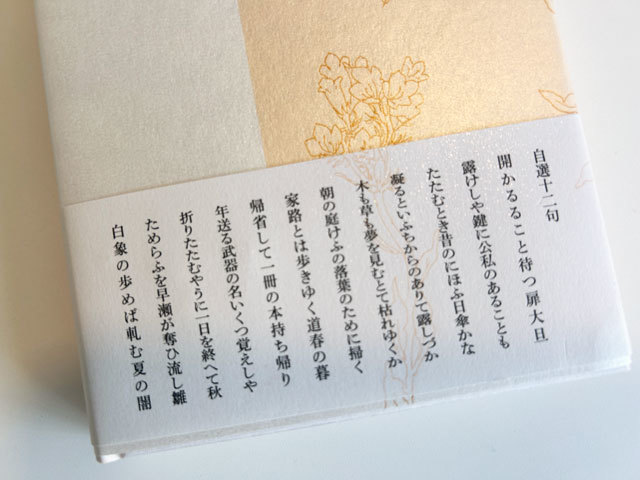 自選十二句
開かるること待つ扉大旦
露けしや鍵に公私のあることも
たたむとき昔のにほふ日傘かな
凝るといふちからのありて露しづか
木も草も夢を見むとて枯れゆくか
朝の庭けふの落葉のために掃く
家路とは歩きゆく道春の暮
帰省して一冊の本持ち帰り
年送る武器の名いくつ覚えしや
折りたたむやうに一日を終へて秋
ためらふを早瀬が奪ひ流し雛
白象の歩めば軋む夏の闇